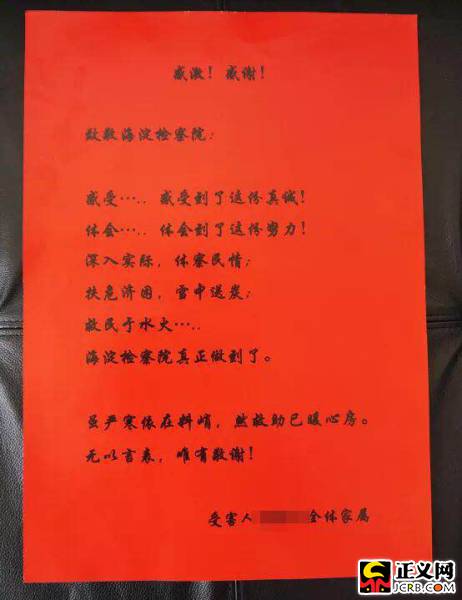 感激！感谢！
致敬海淀检察院：
感受….. 感受到了这份真诚！
体会….. 体会到了这份努力！
深入实际，体察民情；
扶危济困，雪中送炭；
救民于水火…..
海淀检察院真正做到了。
虽严寒依在料峭，然救助已暖心房。
无以言表，唯有敬谢！
受害人 全体家属
正义网
JCRB.COM